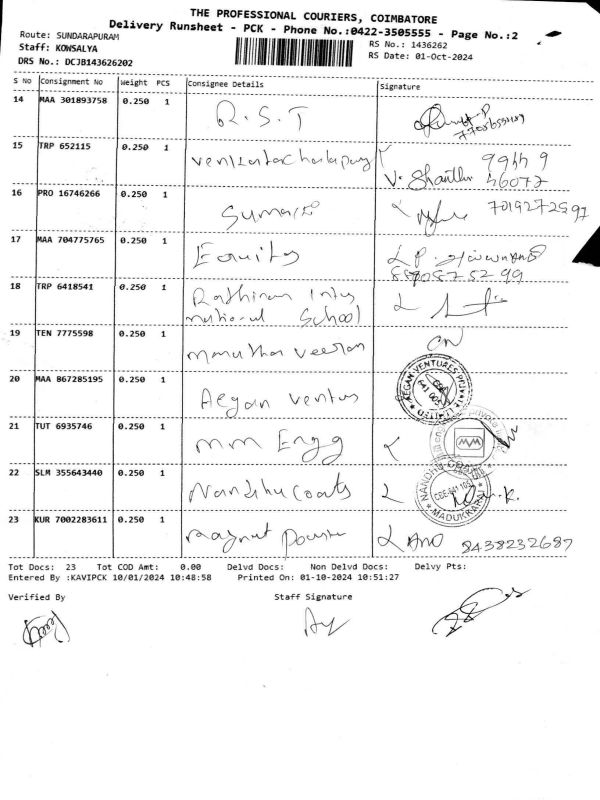 THE PROFESSIONAL COURIERS, COIMBATORE
Delivery Runsheet - PCK - Phone No.:0422-3505555 - Page No.:2
Route: SUNDARAPURAM
RS No.: 1436262
Staff: KOWSALYA
RS Date: 01-Oct-2024
DRS No.: DCJB143626202
S No Consignment No Weight PCS Consignee Details Signature
14 MAA 301893758 0.250 1 R.S.T
15 TRP 652115 0.250 1
V. Shanthi
16 PRO 16746266 0.250 1 7019272597
17 MAA 704775765 0.250 1 Equitas
18 TRP 6418541 0.250 1 Rathinam Inter
national School
19 TEN 7775598 0.250 1 CN
20 MAA 867285195 0.250 1 Aegan Ventus
AEGAN VENTURES PRIVATE LIMITED
21 TUT 6935746 0.250 1 MM Engg
22 SLM 355643440 0.250 1 Nandhu Coats
MADUKKARAI
23 KUR 7002283611 0.250 1 8438232687
Tot Docs: 23 Tot COD Amt: 0.00 Delvd Docs: Non Delvd Docs: Delvy Pts:
Entered By :KAVIPCK 10/01/2024 10:48:58 Printed On: 01-10-2024 10:51:27
Verified By Staff Signature